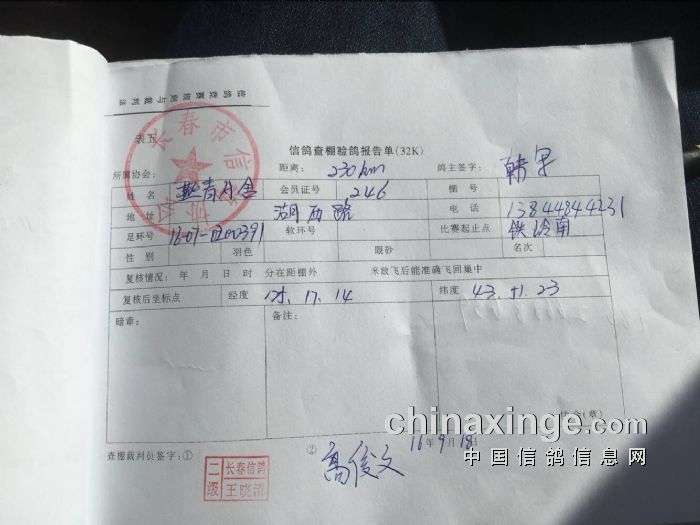 信鸽竞赛规则与裁判法
长春市信
表五
信鸽查棚验鸽报告单(32K)
所属协会: 距离: 230km 鸽主签字:
姓名 会员证号 246 棚号
地址 湖西路 电话 13844844231
足环号 16-07-0200391 软环号 比赛起止点 铁岭南
性别 羽色 眼砂 名次
复核情况: 年 月 日 时 分在距棚外 米放飞后能准确飞回集中
复核后坐标点 经度 125.17.14 纬度 43.51.23
暗章: 备注:
协会(章)
16年9月18日
查棚裁判员签字:① ② 高俊文
二级 长春信鸽
王晓清
chinaxinge.com
中国信鸽信息网